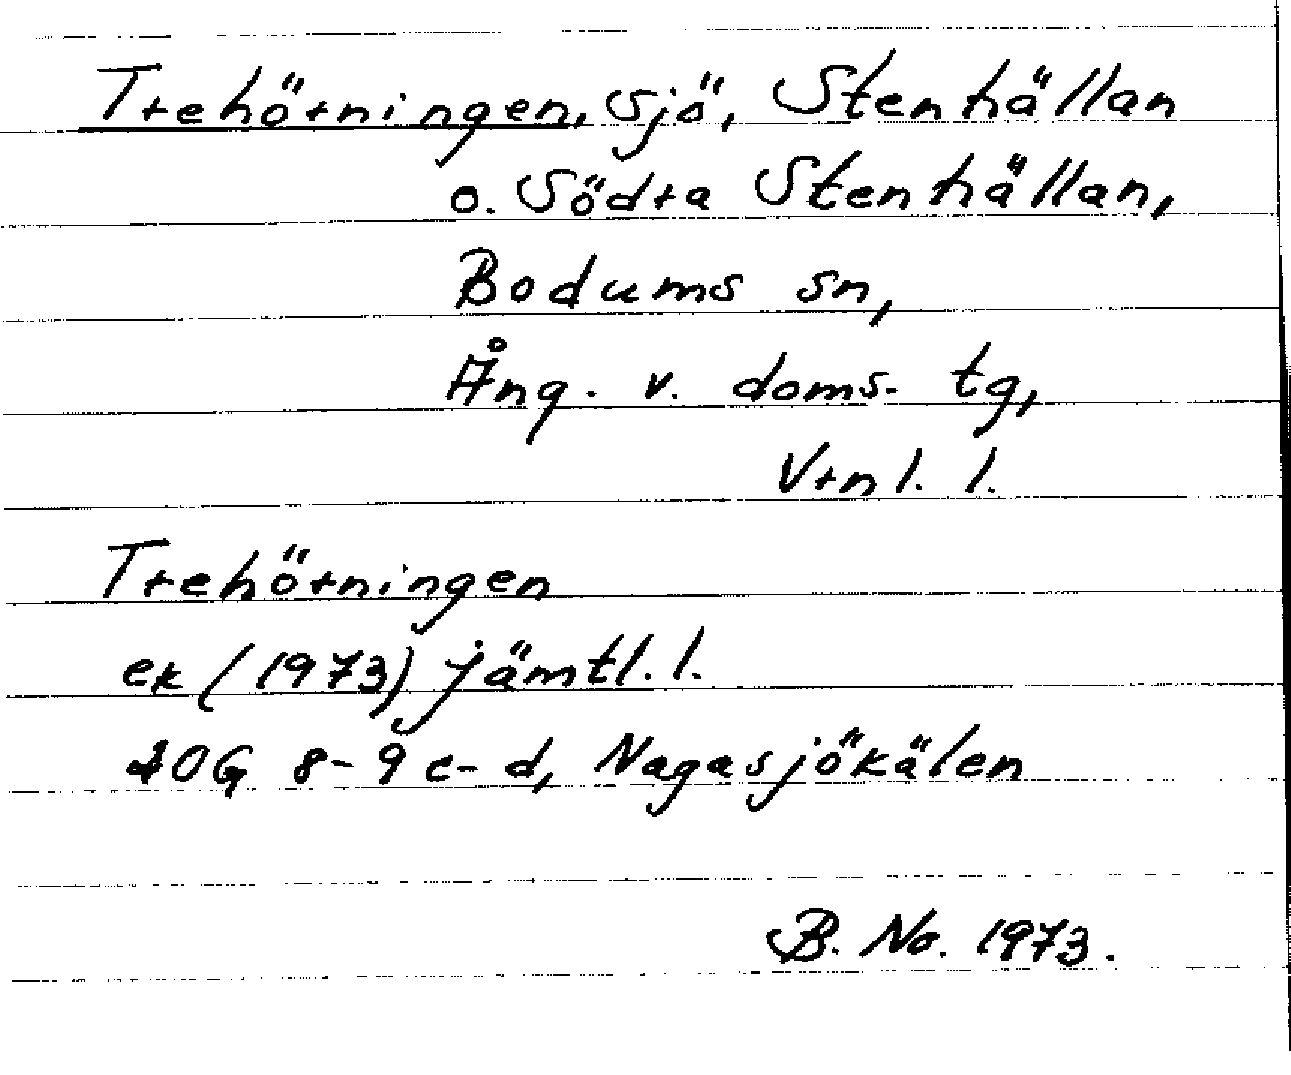 Trehörningen, sjö, Stenhällan
o. Södra Stenhällan,
Bodums sn,
Ång. v. doms. tg,
Vrnl. l.
Trehörningen
ek (1973) Jämtl. l.
20G 8-9 c-d, Nagasjökälen
B. No. 1973.